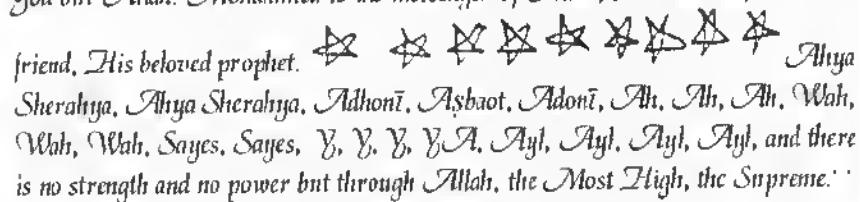 friend, His beloved prophet. Ahya
Sherahya, Ahya Sherahya, Adhonī, Aṣbaot, Adonī, Ah, Ah, Ah, Wah,
Wah, Wah, Sayes, Sayes, Y, Y, Y, YA, Ayl, Ayl, Ayl, Ayl, and there
is no strength and no power but through Allah, the Most High, the Supreme.